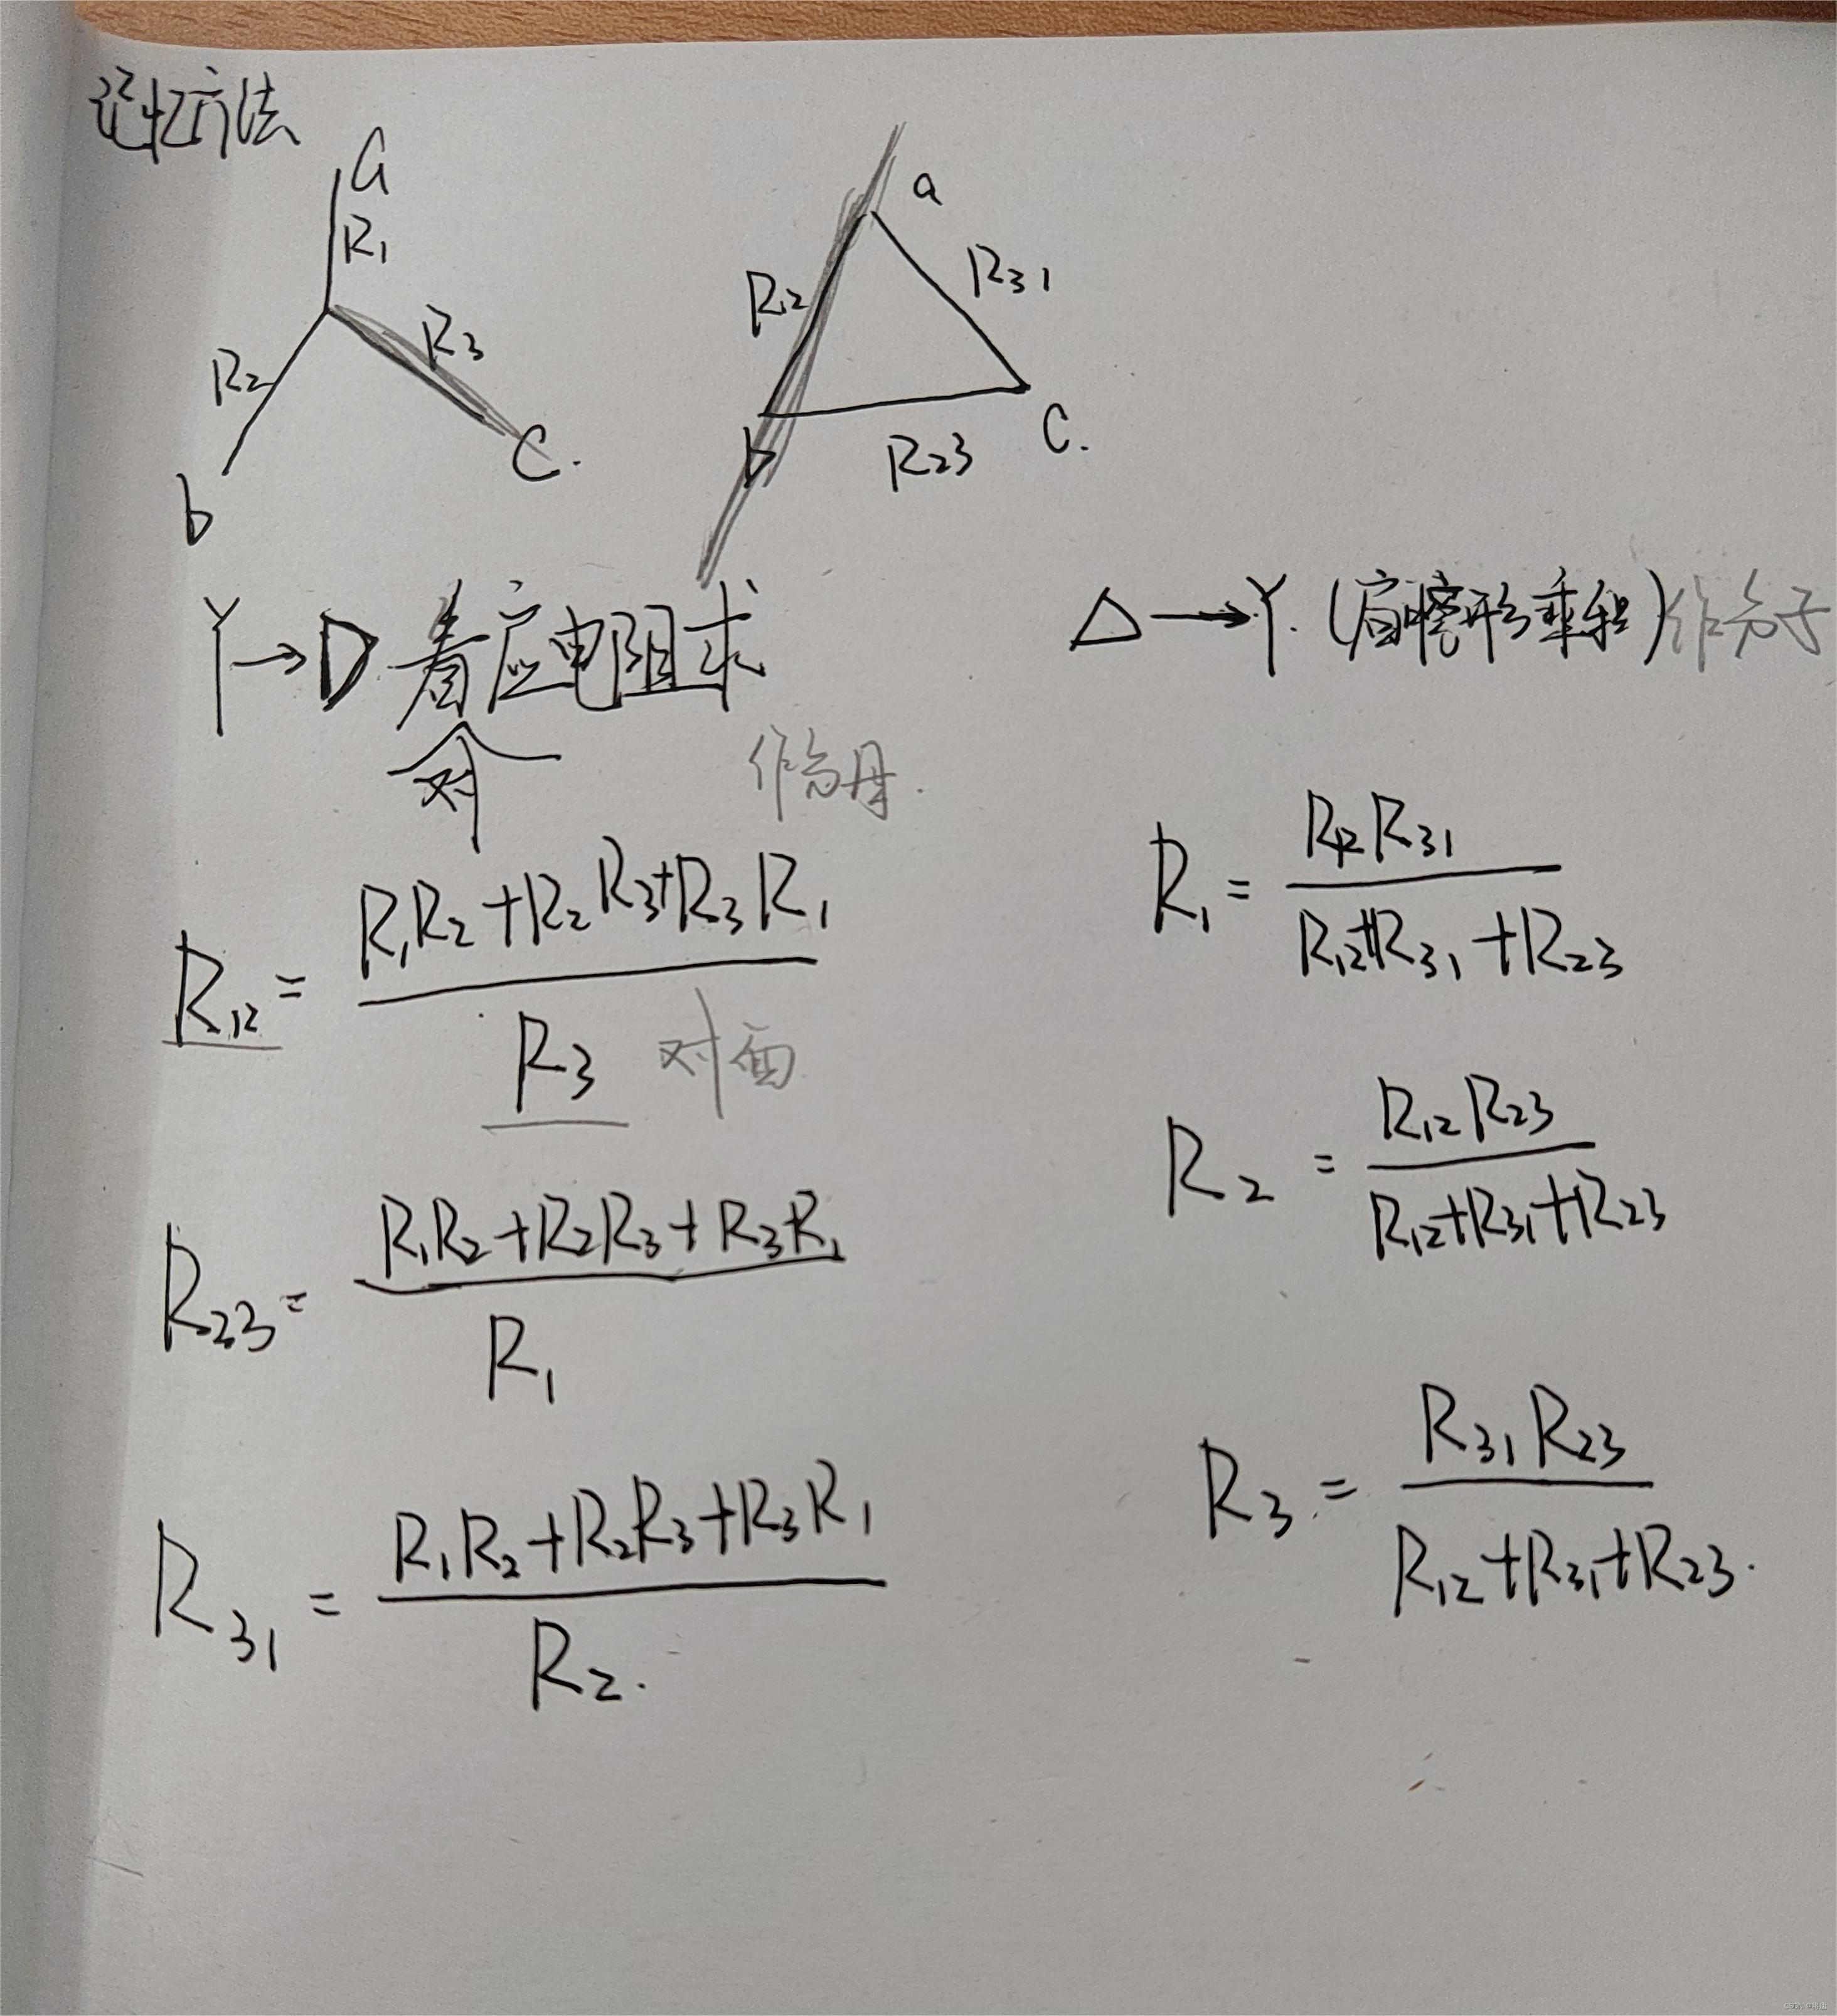 记忆方法
a
R₁
R₂
R₃
b
C.
a
R₁₂
R₃₁
b
R₂₃
C.
Y→D 看应电阻求
对
作分母.
R₁₂ = (R₁R₂+R₂R₃+R₃R₁)/R₃ 对面
R₂₃ = (R₁R₂+R₂R₃+R₃R₁)/R₁
R₃₁ = (R₁R₂+R₂R₃+R₃R₁)/R₂.
△→Y. (形乘积) 作分子
R₁ = R₁₂R₃₁/(R₁₂+R₃₁+R₂₃)
R₂ = R₁₂R₂₃/(R₁₂+R₃₁+R₂₃)
R₃ = R₃₁R₂₃/(R₁₂+R₃₁+R₂₃).